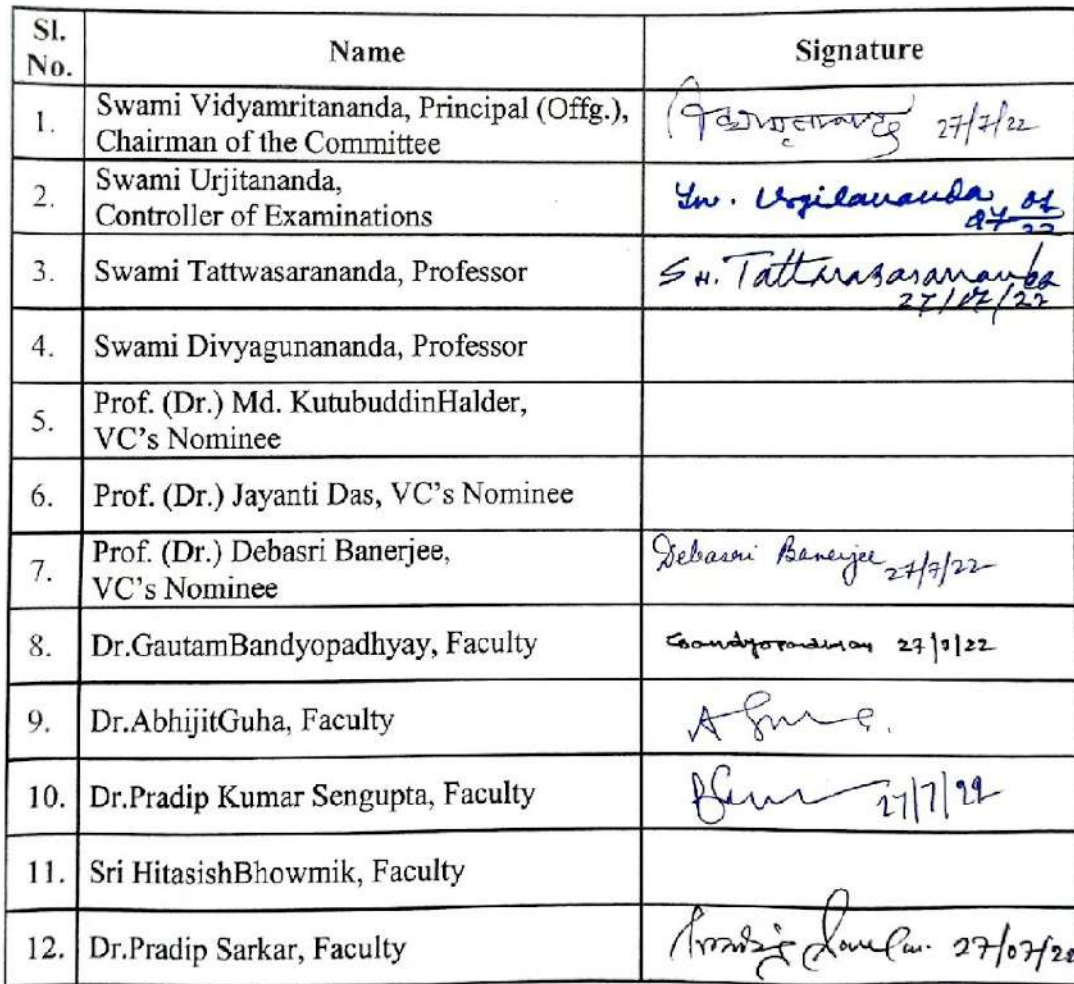 Sl. No. Name Signature
1. Swami Vidyamritananda, Principal (Offg.),
Chairman of the Committee 27/7/22
2. Swami Urjitananda,
Controller of Examinations Sw. Urjitananda
3. Swami Tattwasarananda, Professor Sw. Tattwasarananda
27/07/22
4. Swami Divyagunananda, Professor
5. Prof. (Dr.) Md. KutubuddinHalder,
VC's Nominee
6. Prof. (Dr.) Jayanti Das, VC's Nominee
7. Prof. (Dr.) Debasri Banerjee,
VC's Nominee Debasri Banerjee 27/7/22
8. Dr.GautamBandyopadhyay, Faculty Gbandyopadhyay 27/7/22
9. Dr.AbhijitGuha, Faculty
10. Dr.Pradip Kumar Sengupta, Faculty 27/7/22
11. Sri HitasishBhowmik, Faculty
12. Dr.Pradip Sarkar, Faculty 27/07/22